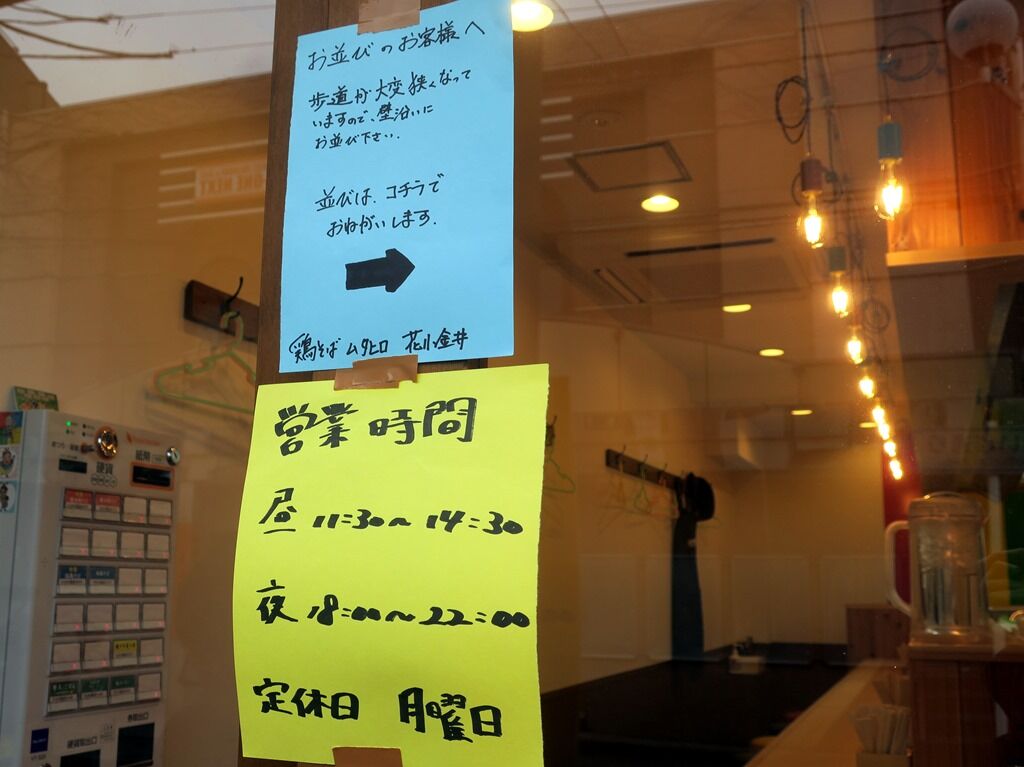 お並びのお客様へ
歩道が大変狭くなって
いますので、壁沿いに
お並び下さい.
並びは、コチラで
おねがいします.
鶏そば ムタヒロ 花小金井
営業時間
昼 11:30~14:30
夜 18:00~22:00
定休日 月曜日
硬貨
紙幣
硬貨取出口